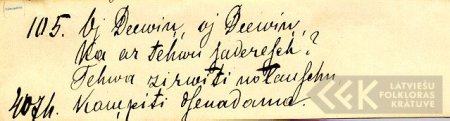 105. Oj Deewiņ, oj Deewiņ,
Ka ar tehwu ſadereſch?
Tehwa zirwiti nolauſchu
407h. Kampiti dſenadama.
LATVIEŠU
FOLKLORAS
KRĀTUVE